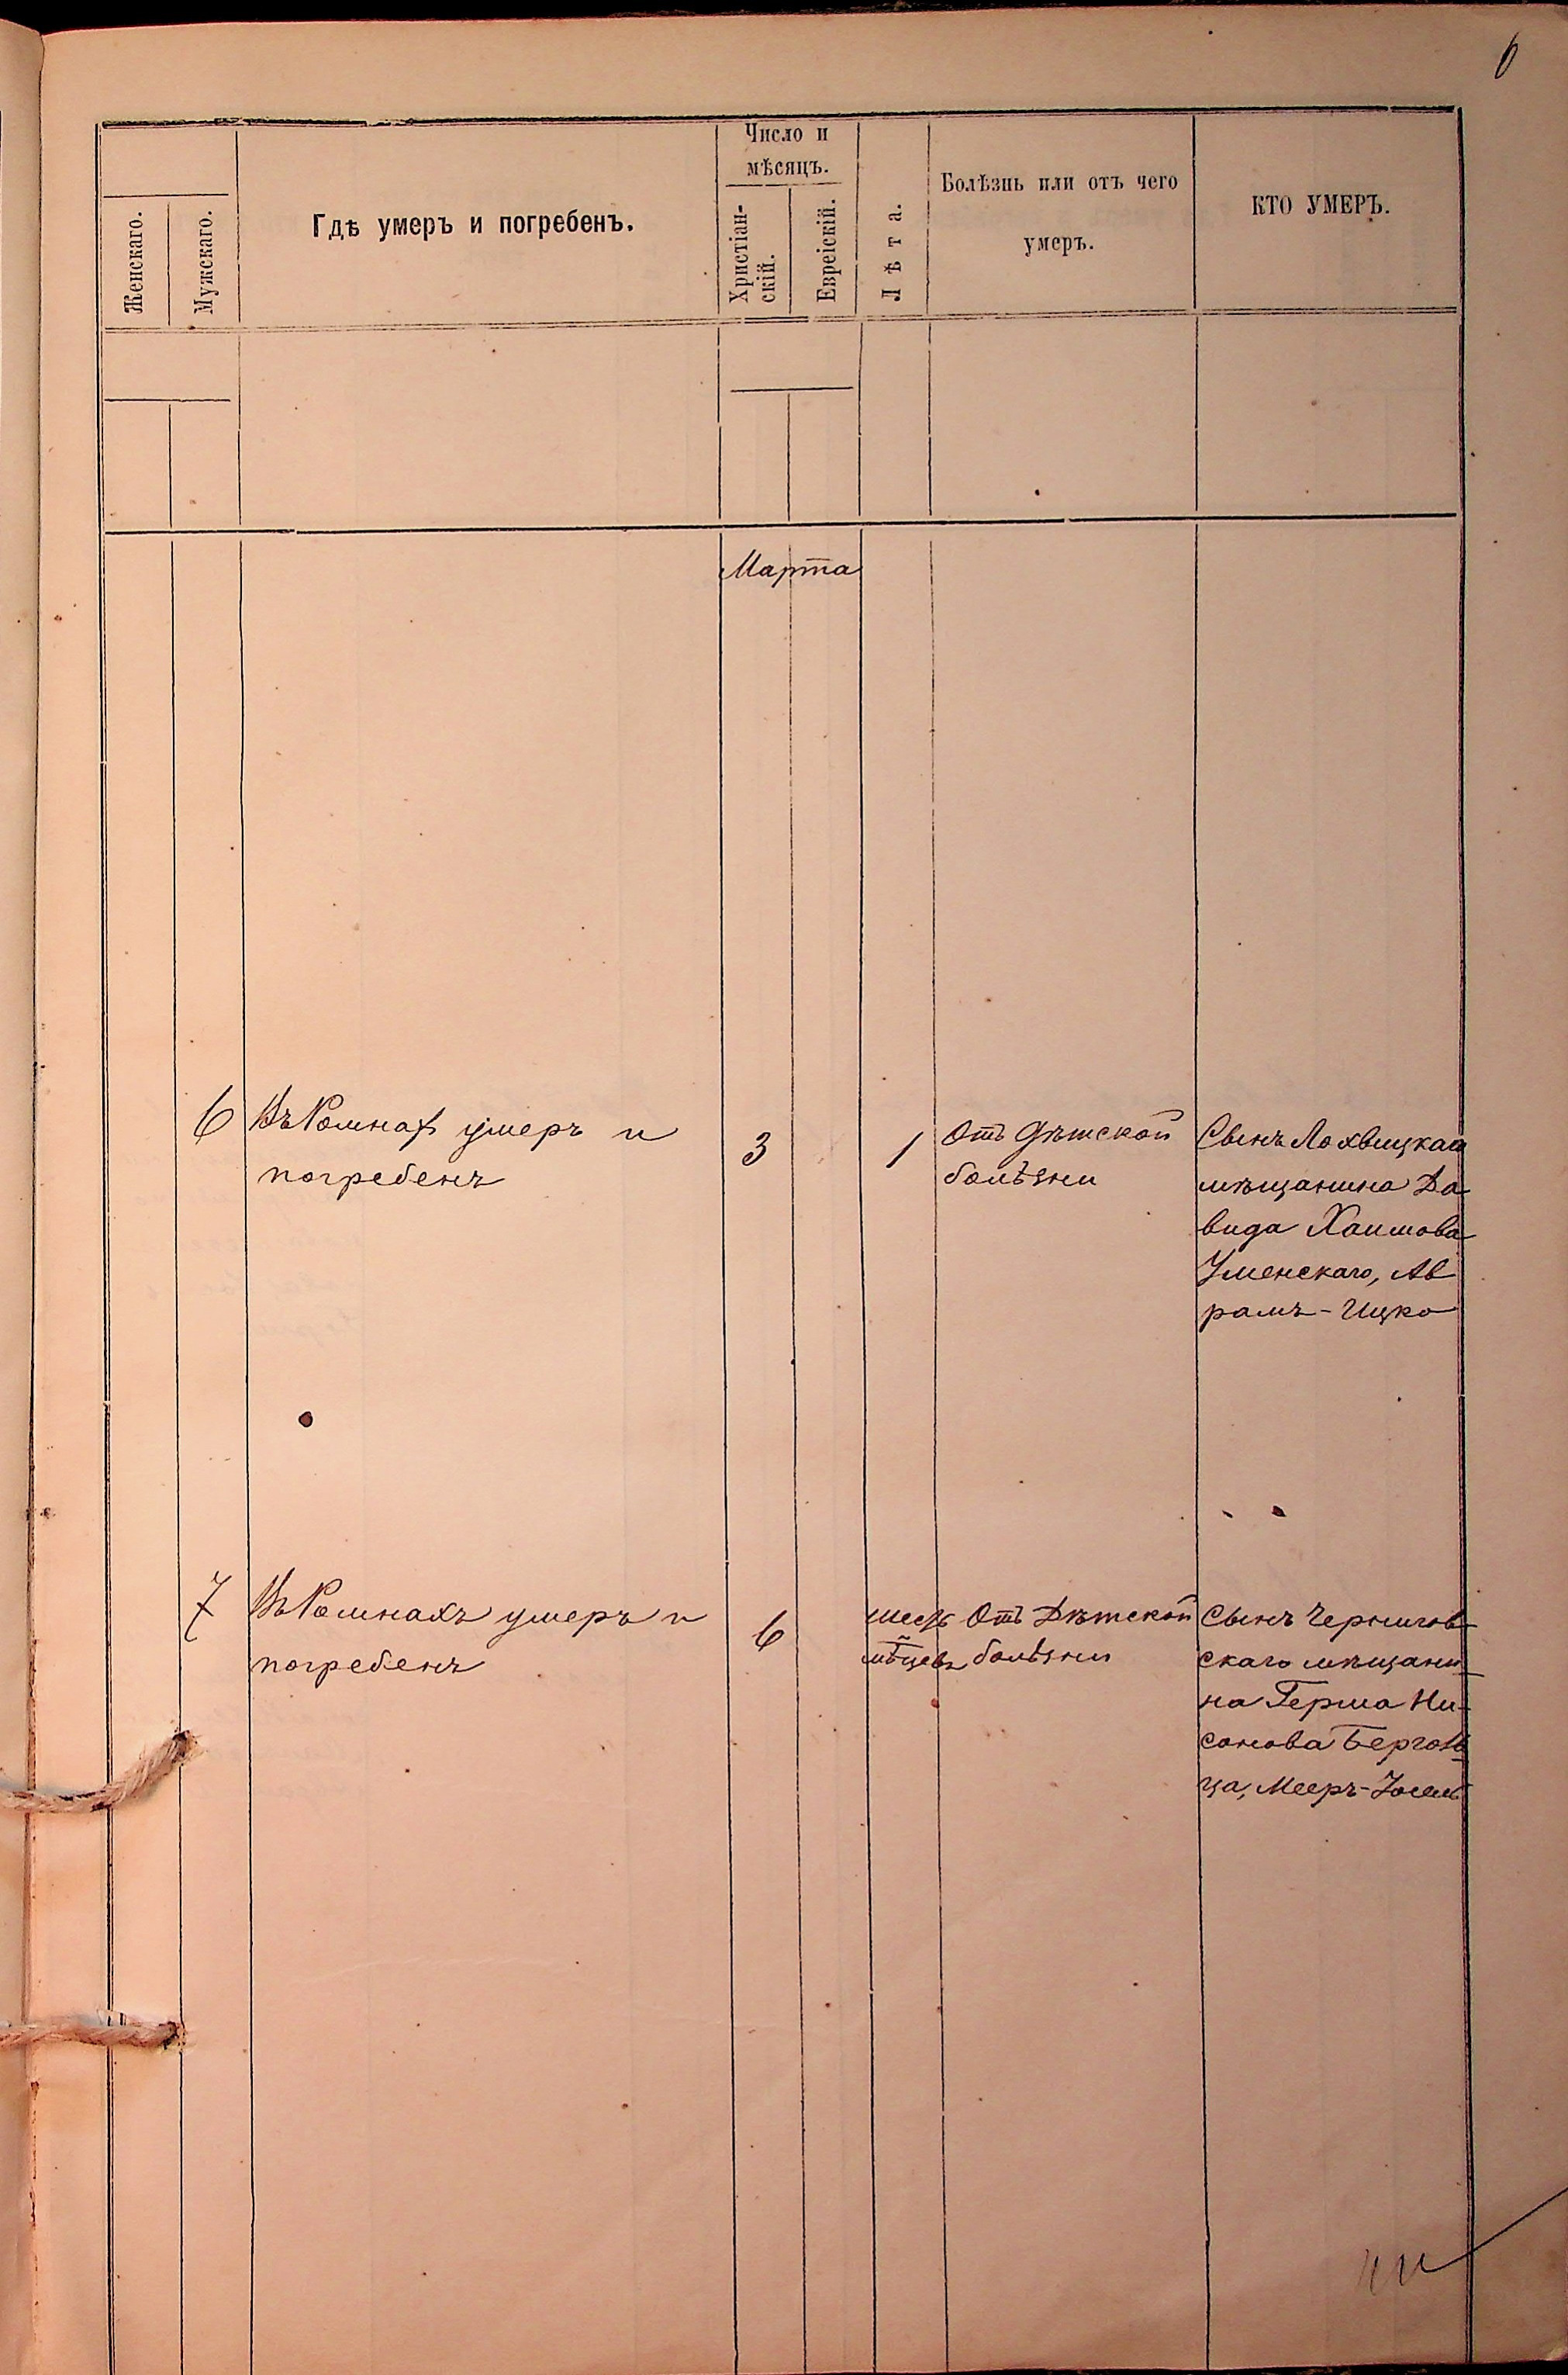 6
Женскаго.
Мужскаго.
Гдѣ умеръ и погребенъ.
Число и
мѣсяцъ.
Христіан-
скій.
Евреіскій.
Лѣта.
Болѣзнь или отъ чего
умеръ.
КТО УМЕРЪ.
Марта
6
Въ Ромнах умеръ и
погребенъ
3
1
Отъ дѣтской
болѣзни
Сынъ Лохвицкаго
мѣщанина Да-
вида Хаимова
Уменскаго, Ав
рамъ-Ицко
7
Въ Ромнахъ умеръ и
погребенъ
6
шесть
мѣцевъ
Отъ Дѣтской
болѣзни
Сынъ Чернигов-
скаго мѣщани-
на Герша Ни-
сонова
ца, Мееръ-Іосель